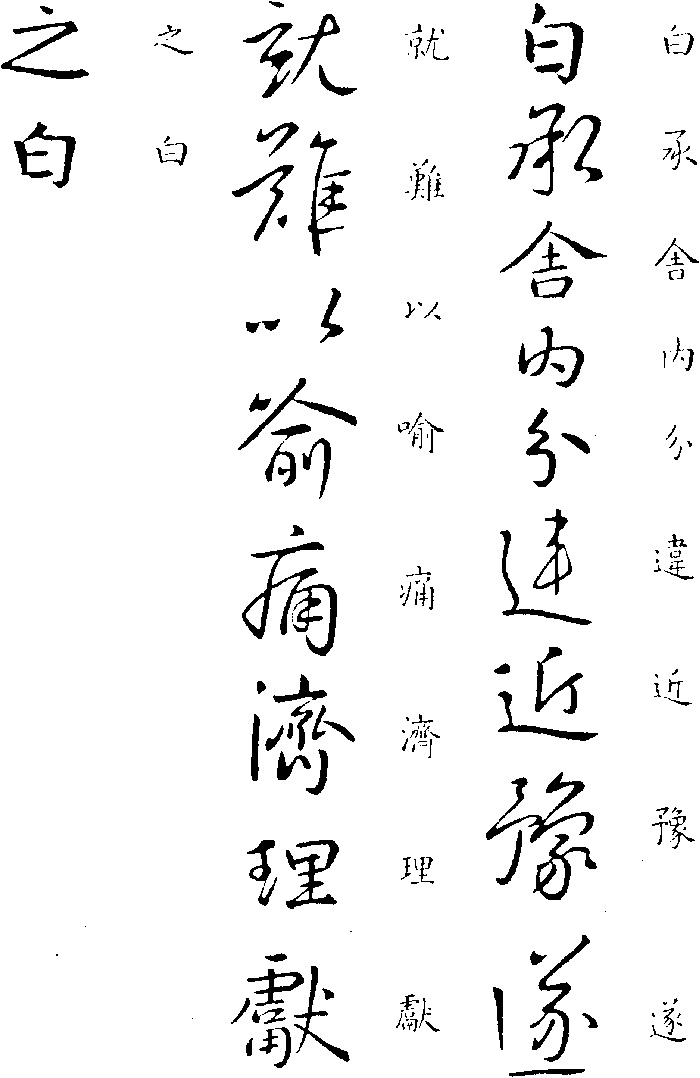 白承舍内分違近豫遂
白承舍内分違近豫遂
就難以喻痛濟理獻
就難以喻痛濟理獻
之白
之白